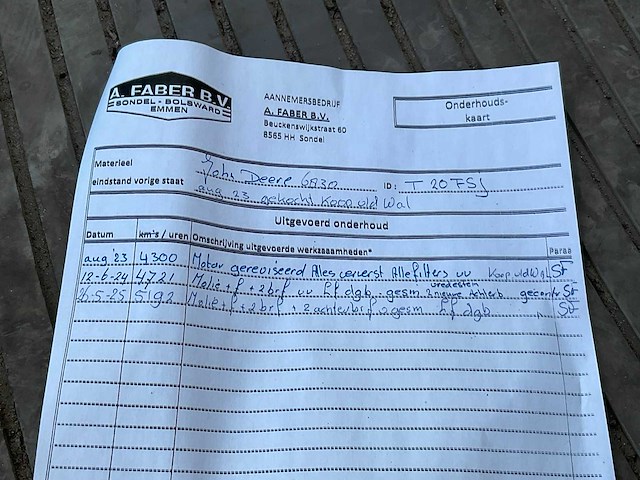 A. FABER B.V.
SONDEL - BOLSWARD
EMMEN
AANNEMERSBEDRIJF
A. FABER B.V.
Beuckenswijkstraat 60
8565 HH Sondel
Onderhouds-
kaart
Materieel John Deere 6930 ID: T 20 FSJ
eindstand vorige staat aug 23 gekocht Koop vld Wal
Uitgevoerd onderhoud
Datum km's / uren Omschrijving uitgevoerde werkzaamheden* Paraa
aug '23 4300 Motor gereviseerd Alles ververst Alle filters vv Koop vld Wal St
12-6-24 4721 Molie + f + 2 brf vv Lf dgb, gesm 2 nieuwe achterb St
vredestein
5-25 5192 Molie + f + 2 brf + 2 gesm Lf dgb St